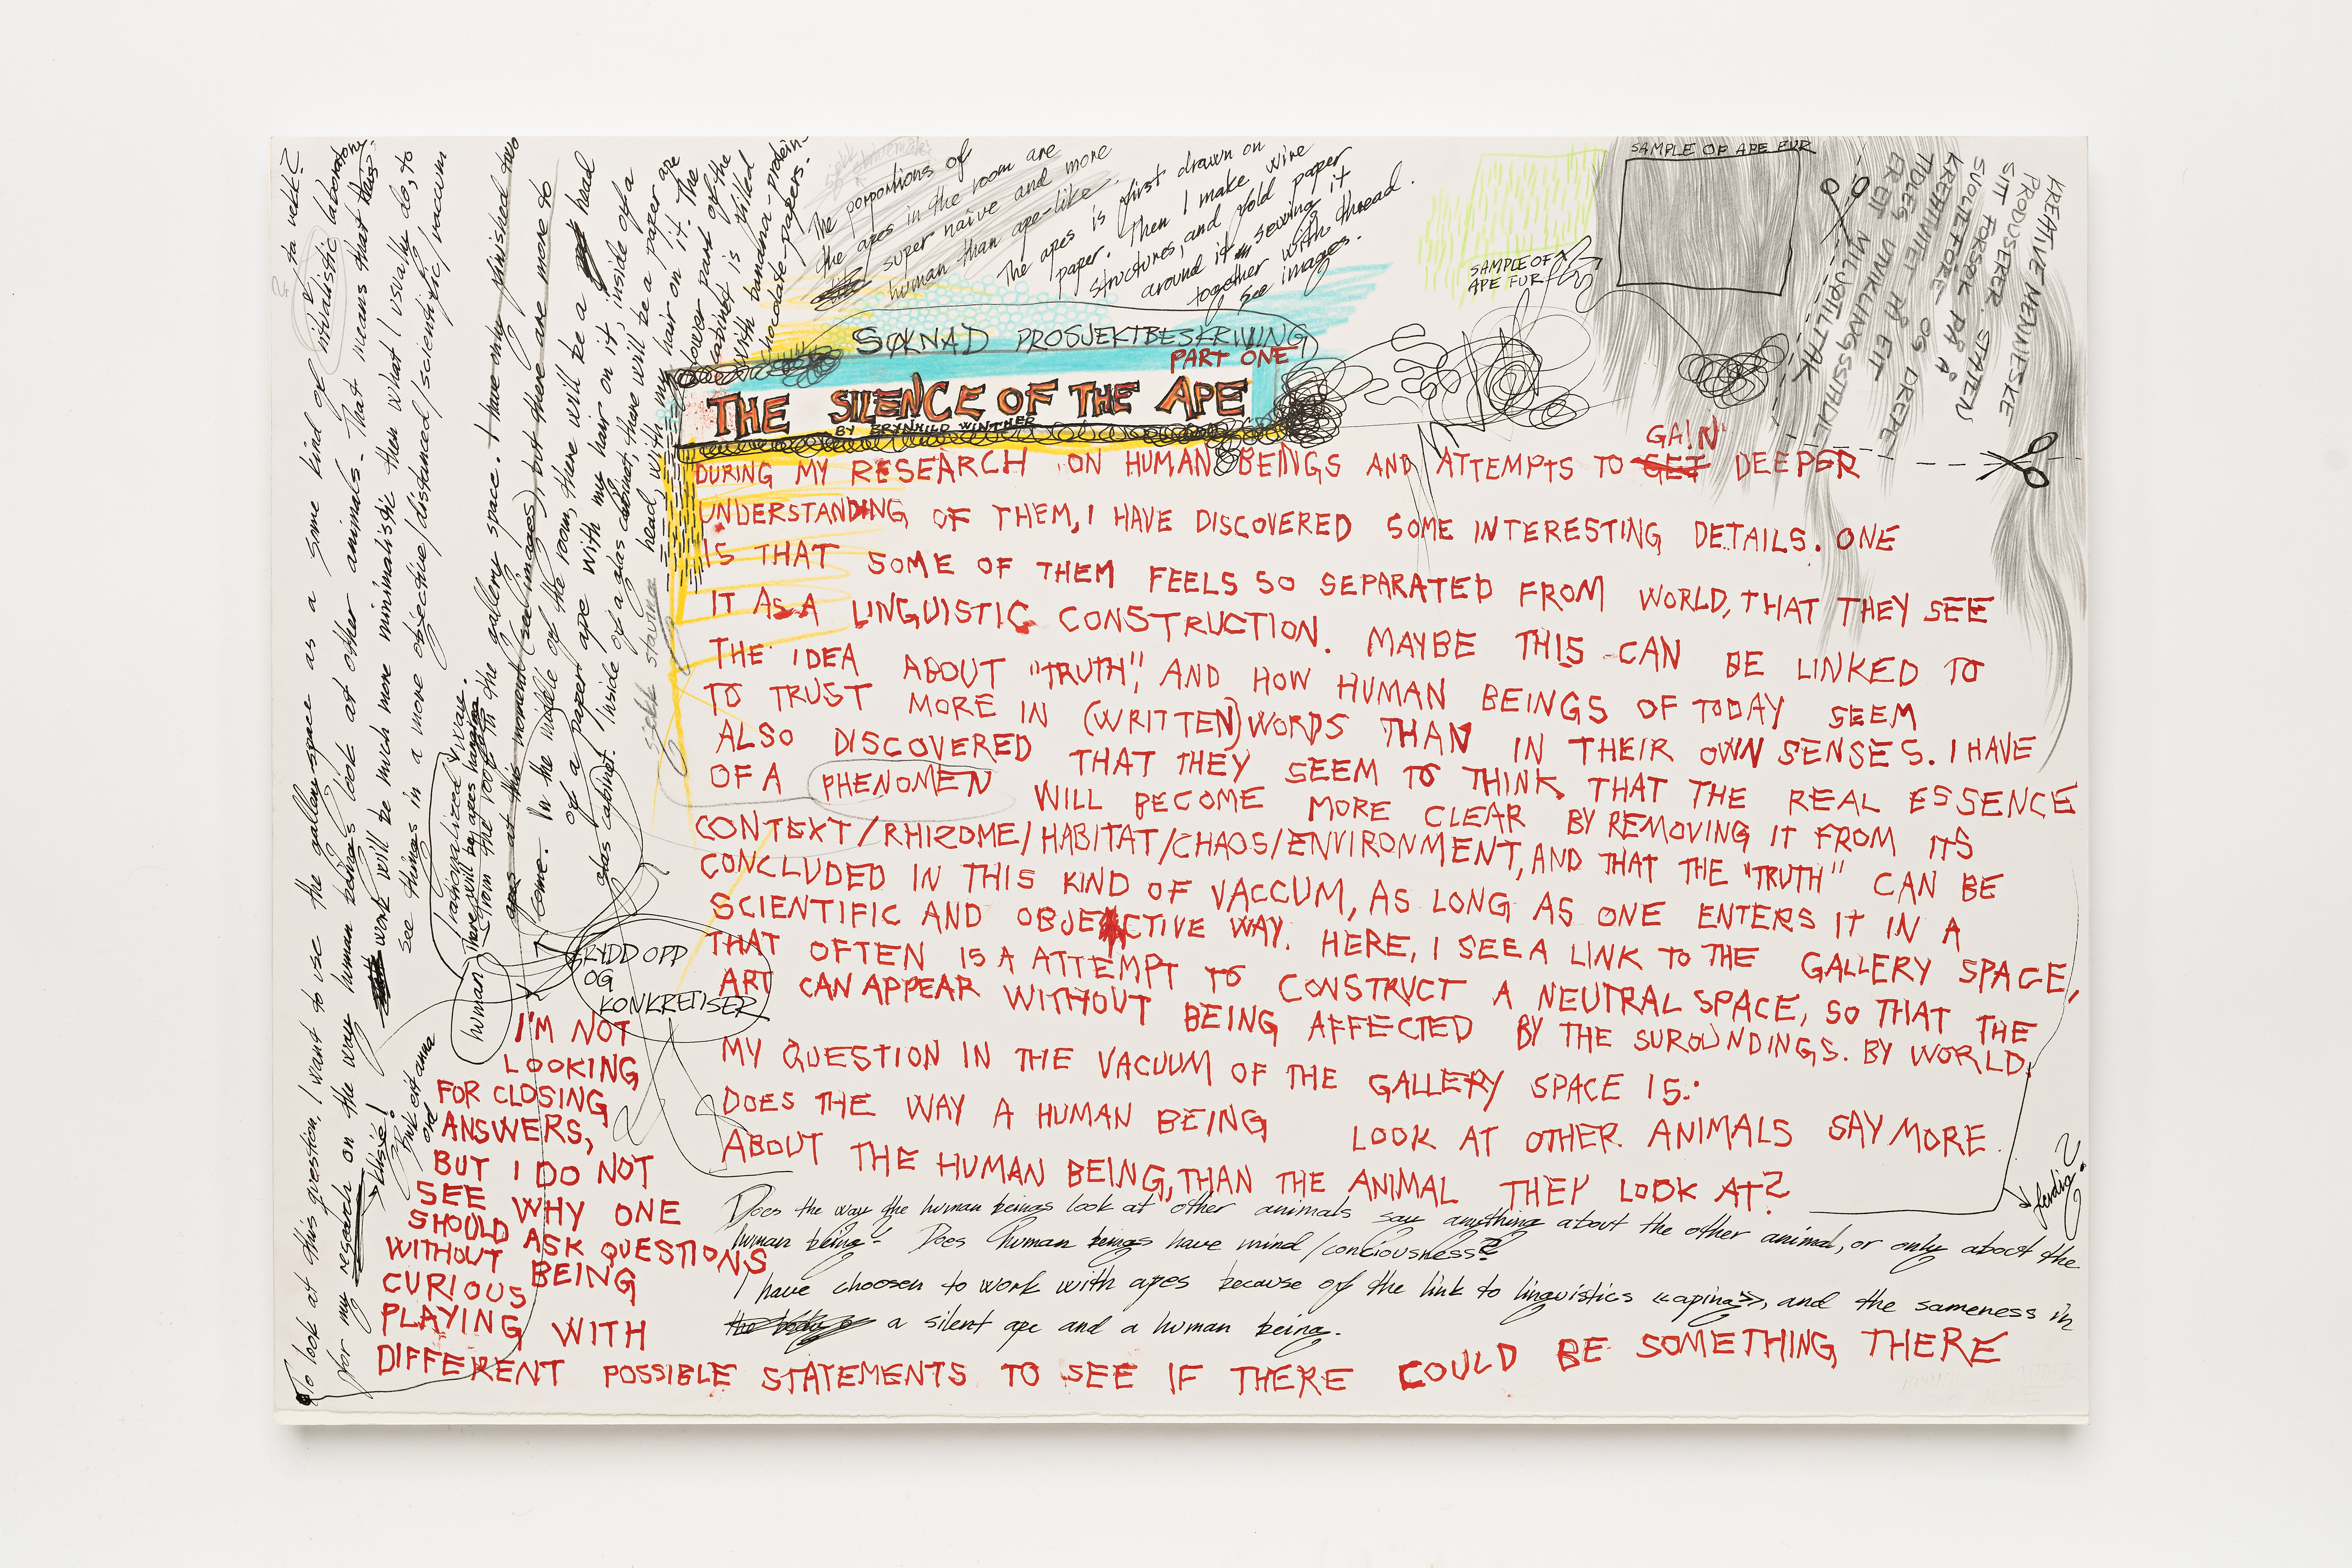 SØKNAD PROSJEKTBESKRIVING
PART ONE
THE SILENCE OF THE APE
BY BRYNHILD WINTHER
GAIN
DURING MY RESEARCH ON HUMAN BEINGS AND ATTEMPTS TO GET DEEPER
UNDERSTANDING OF THEM, I HAVE DISCOVERED SOME INTERESTING DETAILS. ONE
IS THAT SOME OF THEM FEELS SO SEPARATED FROM WORLD, THAT THEY SEE
IT AS A LINGUISTIC CONSTRUCTION. MAYBE THIS CAN BE LINKED TO
THE IDEA ABOUT "TRUTH", AND HOW HUMAN BEINGS OF TODAY SEEM
TO TRUST MORE IN (WRITTEN) WORDS THAN IN THEIR OWN SENSES. I HAVE
ALSO DISCOVERED THAT THEY SEEM TO THINK THAT THE REAL ESSENCE
OF A PHENOMEN WILL BECOME MORE CLEAR BY REMOVING IT FROM ITS
CONTEXT/RHIZOME/HABITAT/CHAOS/ENVIRONMENT, AND THAT THE "TRUTH" CAN BE
CONCLUDED IN THIS KIND OF VACCUM, AS LONG AS ONE ENTERS IT IN A
SCIENTIFIC AND OBJECTIVE WAY. HERE, I SEE A LINK TO THE GALLERY SPACE,
THAT OFTEN IS A ATTEMPT TO CONSTRUCT A NEUTRAL SPACE, SO THAT THE
ART CAN APPEAR WITHOUT BEING AFFECTED BY THE SUROUNDINGS. BY WORLD.
MY QUESTION IN THE VACUUM OF THE GALLERY SPACE IS:
DOES THE WAY A HUMAN BEING LOOK AT OTHER ANIMALS SAY MORE
ABOUT THE HUMAN BEING, THAN THE ANIMAL THEY LOOK AT?
Does the way the human beings look at other animals say anything about the other animal, or only about the
human being? Does human beings have mind/conciousness?
I have choosen to work with apes because of the link to linguistics «aping», and the sameness in
a silent ape and a human being.
I'M NOT
LOOKING
FOR CLOSING
ANSWERS,
BUT I DO NOT
SEE WHY ONE
SHOULD ASK QUESTIONS
WITHOUT BEING
CURIOUS
PLAYING WITH
DIFFERENT POSSIBLE STATEMENTS TO SEE IF THERE COULD BE SOMETHING THERE
RYDD OPP
OG
KONKRETISER
To look at this question, I want to use the gallery space as a some kind of ritualistic laboratory
for my research on the way human beings look at other animals. That means that
work will be much more minimalistic then what I usually do, to
see things in a more objective/distanced/scientific/vacuum
rationalized way.
human
There will be apes hanging
from the roof in the gallery space. I have only finished two
apes at this moment (see images), but there are more to
come. In the middle of the room, there will be a head
of a paper ape with my hair on it, inside of a
glas cabinet. Inside of a glas cabinet, there will be a paper ape
head, with my hair on it. The
lower part of the
cabinet is filled
with banana-protein-
chocolate-papers.
The porportions of
the apes in the room are
super naive and more
human than ape-like.
The apes is first drawn on
paper. Then I make wire
structures, and fold paper
around it sewing it
together with thread.
See images.
SAMPLE OF
APE FUR
SAMPLE OF APE FUR
KREATIVE MENNESKE
PRODUSERER. STATEN
SITT FORSØK PÅ Å
KREATIVITET OG DREPE
klisjé!
ferdig?